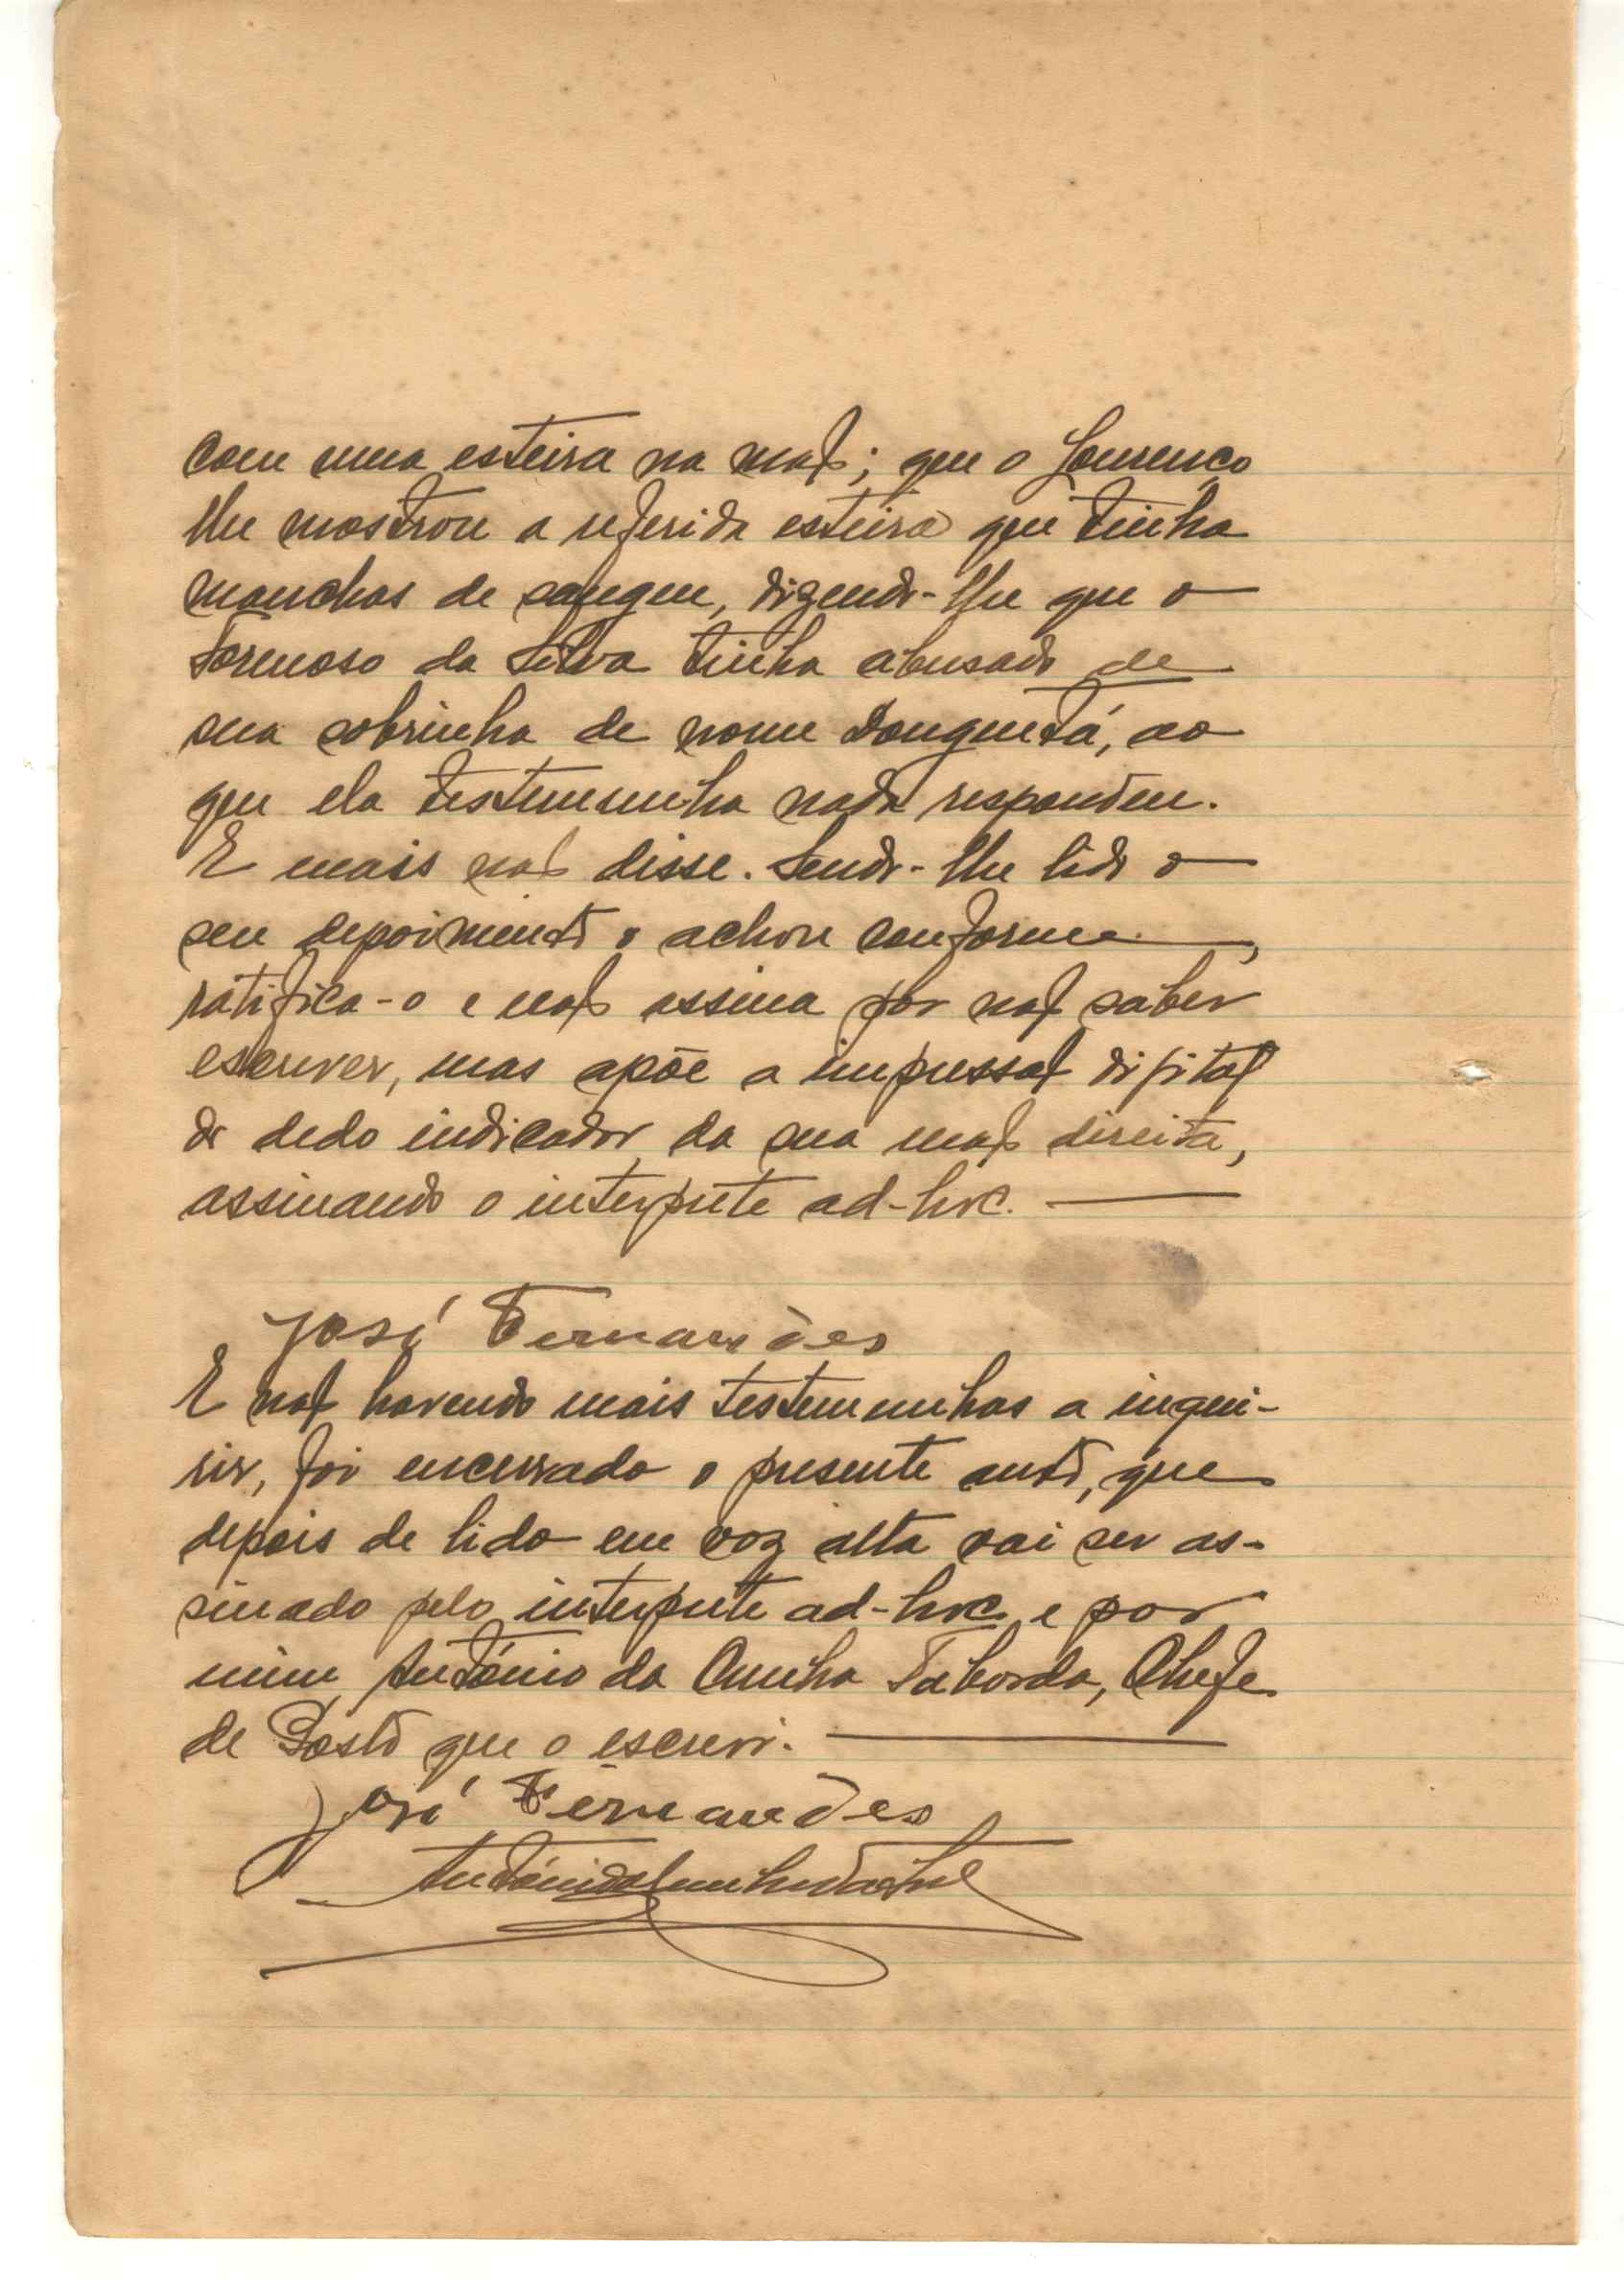 com uma esteira na mão; que o Lourenço
lhe mostrou a referida esteira que tinha
manchas de sangue, dizendo-lhe que o
Formoso da Silva tinha abusado de
sua sobrinha de nome Donguetá, ao
que ela testemunha nada respondeu.
E mais não disse. Sendo-lhe lido o
seu depoimento o achou conforme,
ratifica-o e não assina por não saber
escrever, mas apõe a impressão digital
do dedo indicador da sua mão direita,
assinando o interprete ad-hoc.
José Fernandes
E não havendo mais testemunhas a inqui-
rir, foi encerrado o presente auto, que
depois de lido em voz alta vai ser as-
sinado pelo interprete ad-hoc e por
mim António da Cunha Taborda, Chefe
de Posto que o escrevi.
José Fernandes
António da Cunha Taborda